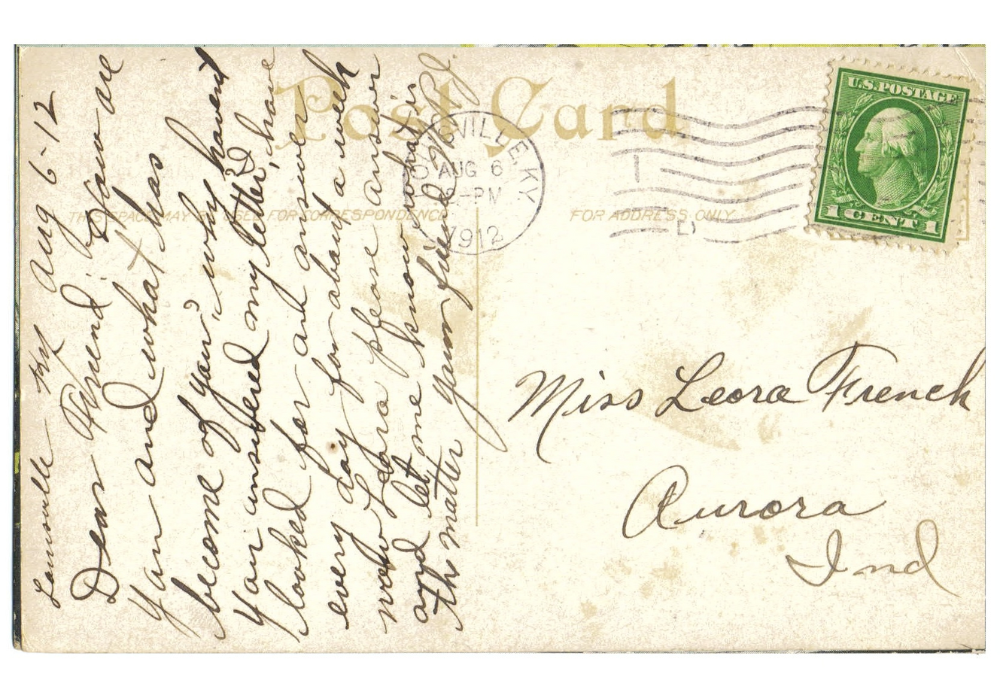 Post Card
THIS SPACE MAY BE USED FOR CORRESPONDENCE
FOR ADDRESS ONLY
LOUISVILLE, KY.
AUG 6
PM
1912
U.S. POSTAGE
1 CENT 1
Louisville Ky Aug 6-12
Dear Friend, How are
You and what has
become of you? why havent
You answered my letter, I have
looked for an answer
every day for about a week
now Leora please answer
and let me know what is
the matter your friend
Miss Leora French
Aurora
Ind